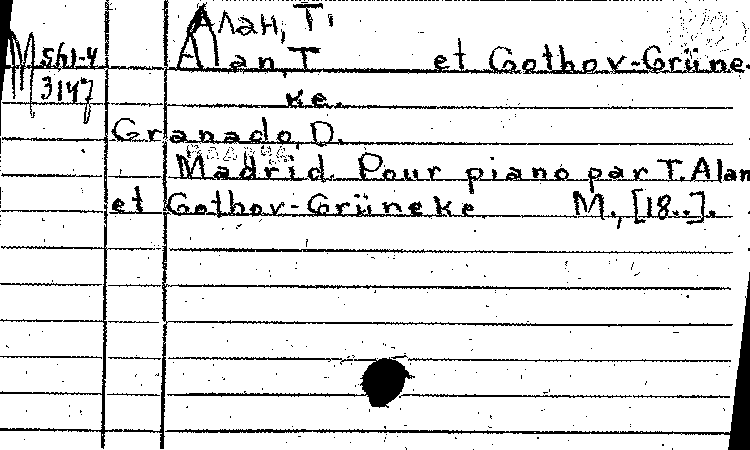 Алан, Т.
M 561-4
Alan, T et Gothov-Grüne-
3147
ке.
Granado, D.
Madrid. Pour piano par T. Alan
et Gothov-Grüneke M., [18..].